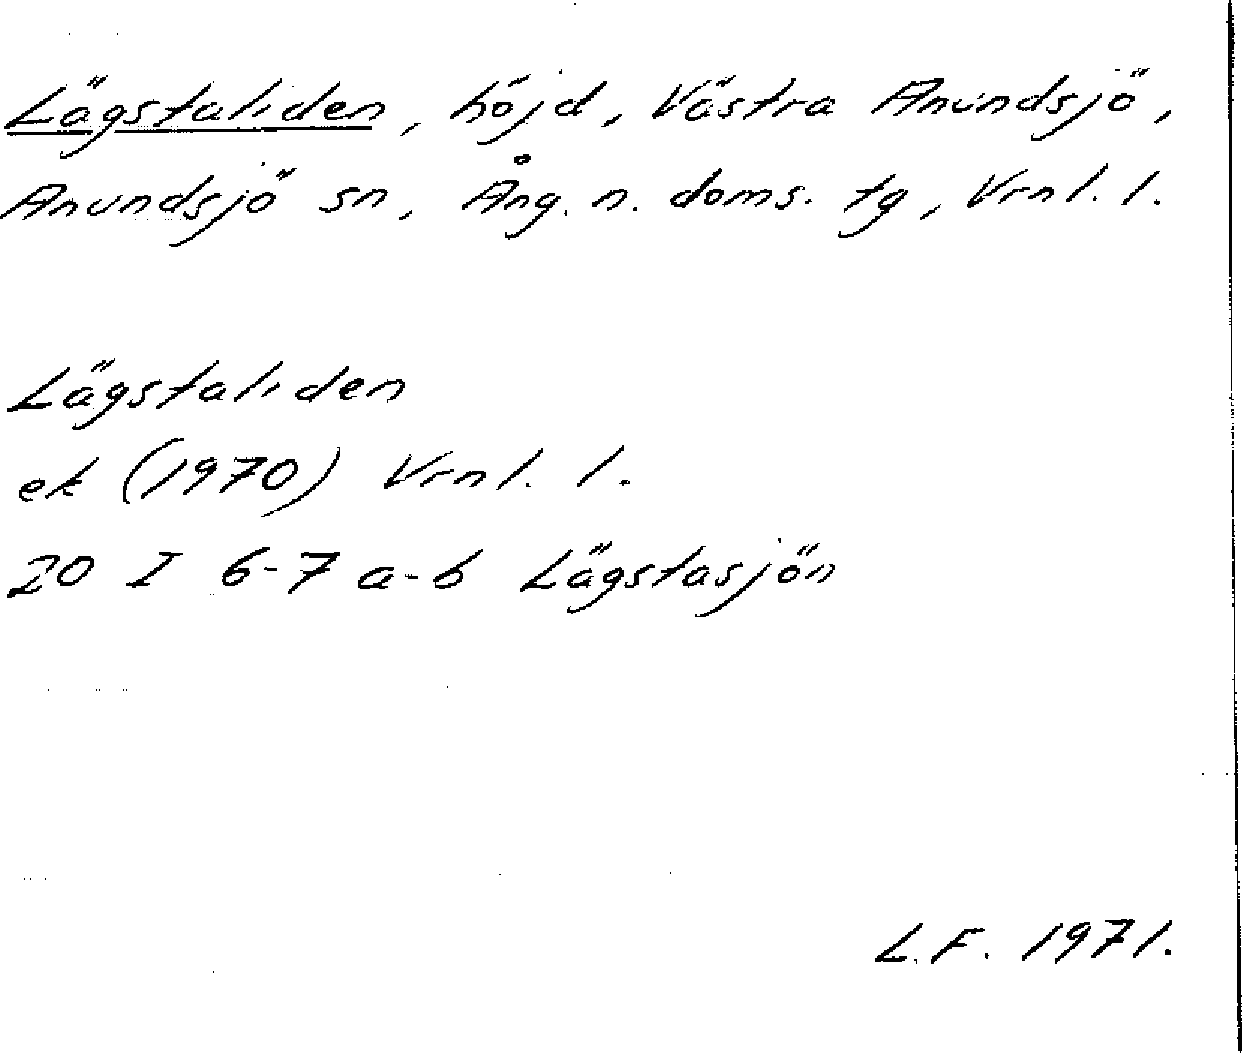 Lägstaliden, höjd, Västra Anundsjö,
Anundsjö sn, Ång. n. doms. tg, Vrnl. l.
Lägstaliden
ek (1970) Vrnl. l.
20 I 6-7 a-b Lägstasjön
L.F. 1971.